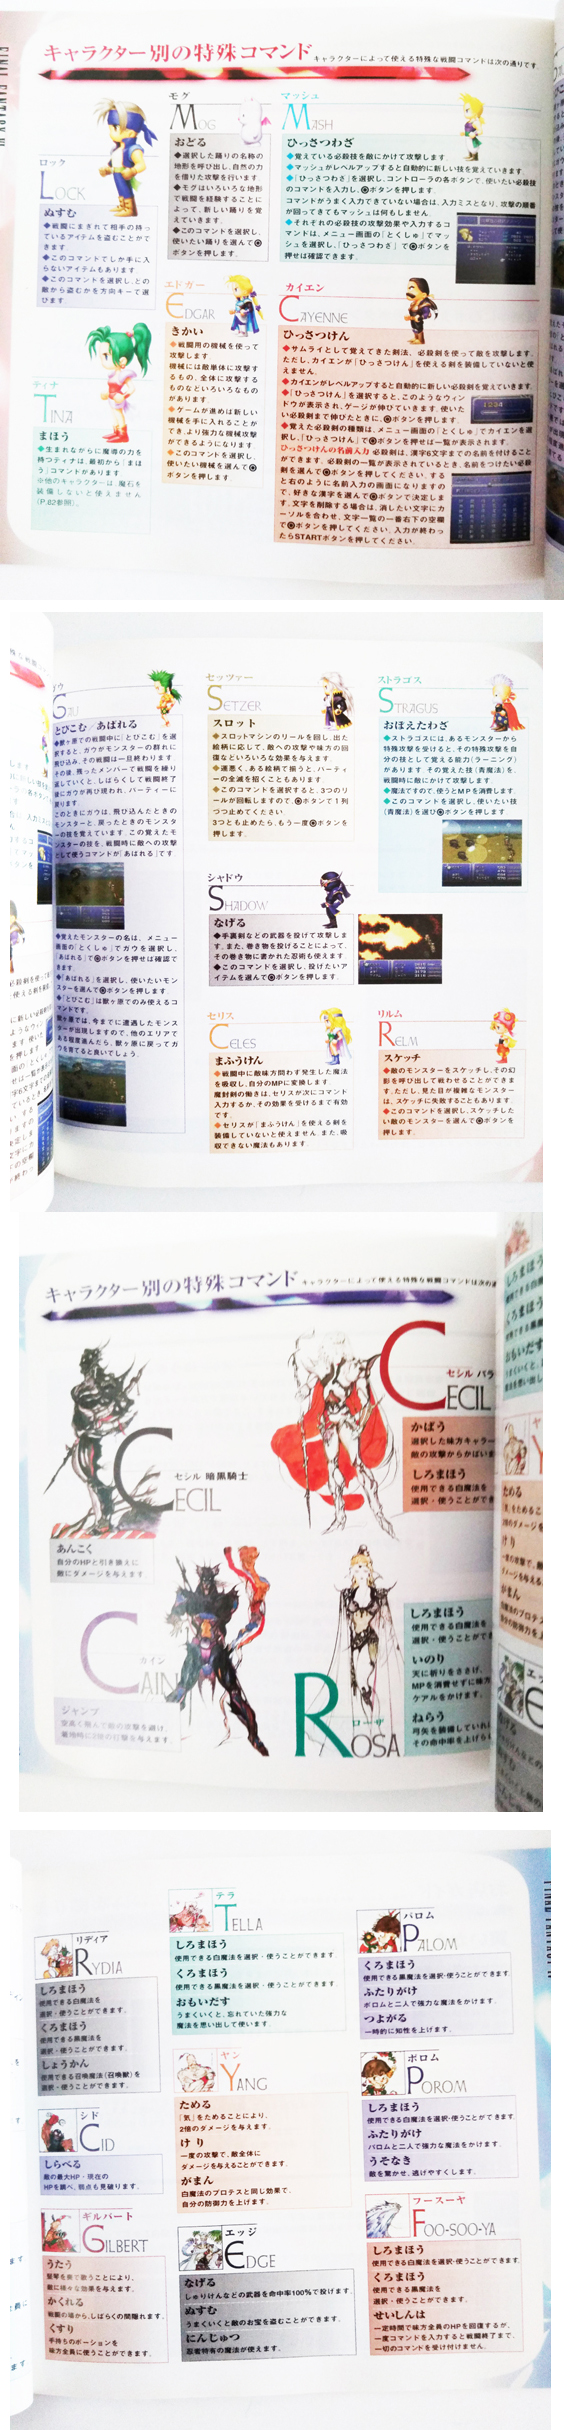 FINAL FANTASY VI
キャラクター別の特殊コマンド
キャラクターによって使える特殊な戦闘コマンドは次の通りです
ロック
LOCK
ぬすむ
◆戦闘にまぎれて相手の持っ
ているアイテムを盗むことがで
きます.
◆このコマンドでしか手に入
らないアイテムもあります.
◆このコマンドを選択し、どの
敵から盗むかを方向キーで選
びます
ティナ
TINA
まほう
◆生まれながらに魔導の力を
持つティナは、最初から「まほ
う」コマンドがあります
※他のキャラクターは、魔石を
装備しないと使えません
(P.82参照).
モグ
MOG
おどる
◆選択した踊りの名称の
地形を呼び出し、自然の力
を借りた攻撃を行います.
◆モグはいろいろな地形
で戦闘を経験することに
よって、新しい踊りを覚
えていきます.
◆このコマンドを選択し、
使いたい踊りを選んで
ボタンを押します.
エドガー
EDGAR
きかい
◆戦闘用の機械を使って
攻撃します.
機械には敵単体に攻撃す
るもの、全体に攻撃する
ものなどいろいろなもの
があります.
◆ゲームが進めば新しい
機械を手に入れることが
でき、より強力な機械攻撃
ができるようになります.
◆このコマンドを選択し、
使いたい機械を選んで
ボタンを押します.
マッシュ
MASH
ひっさつわざ
◆覚えている必殺技を敵にかけて攻撃します.
◆マッシュがレベルアップすると自動的に新しい技を覚えていきます
◆「ひっさつわざ」を選択し、コントローラの各ボタンで、使いたい必殺技
のコマンドを入力し、ボタンを押します.
コマンドがうまく入力できていない場合は、入力ミスとなり、攻撃の順番
が回ってきてもマッシュは何もしません.
◆それぞれの必殺技の攻撃効果や入力するコ
マンドは、メニュー画面の「とくしゅ」でマッ
シュを選択し、「ひっさつわざ」でボタンを押
せば確認できます.
カイエン
CAYENNE
ひっさつけん
◆サムライとして覚えてきた剣法、必殺剣を使って敵を攻撃します.
ただし、カイエンが「ひっさつけん」を使える剣を装備していないと使
えません.
◆カイエンがレベルアップすると自動的に新しい必殺剣を覚えていきます.
◆「ひっさつけん」を選択すると、このようなウィン
ドウが表示され、ゲージが伸びていきます. 使いた
い必殺剣まで伸びたときに、ボタンを押してください.
◆覚えた必殺剣の種類は、メニュー画面の「とくしゅ」でカイエンを選
択し、「ひっさつけん」でボタンを押せば一覧が表示されます.
ひっさつけんの名前入力 必殺剣は、漢字6文字までの名前を付けること
ができます. 必殺剣の一覧が表示されているとき、名前をつけたい必殺
剣を選んでボタンを押してください. する
と右のように名前入力の画面になりますの
で、好きな漢字を選んでボタンで決定しま
す. 文字を削除する場合は、消したい文字にカ
ーソルを合わせ、文字一覧の一番右下の空欄
でボタンを押してください. 入力が終わっ
たらSTARTボタンを押してください.
GAU
とびこむ/あばれる
◆獣ヶ原での戦闘中に「とびこむ」を選
択すると、ガウがモンスターの群れに
飛び込み、その戦闘は一旦終わります
その後、残ったメンバーで戦闘を繰り
返していくと、しばらくして戦闘終了
後にガウが再び現われ、パーティーに
戻ります
このときにガウは、飛び込んだときの
モンスターと、戻ったときのモンスタ
ーの技を覚えています. この覚えたモ
ンスターの技を、戦闘時に敵への攻撃
として使うコマンドが「あばれる」です
◆覚えたモンスターの名は、メニュー
画面の「とくしゅ」でガウを選択し、
「あばれる」でボタンを押せば確認で
きます.
◆「あばれる」を選択し、使いたいモン
スターを選んでボタンを押します
◆「とびこむ」は獣ヶ原でのみ使えるコ
マンドです.
獣ヶ原では、今までに遭遇したモンス
ターが出現しますので、他のエリアで
ある程度進んだら、獣ヶ原に戻ってガ
ウを育てると良いでしょう.
セッツァー
SETZER
スロット
◆スロットマシンのリールを回し、出た
絵柄に応じて、敵への攻撃や味方の回
復などいろいろな効果を与えます.
◆運悪く、ある絵柄で揃うと、パーティ
ーの全滅を招くこともあります.
◆このコマンドを選択すると、3つのリ
ールが回転しますので、ボタンで1列
づつ止めてください
3つとも止めたら、もう一度ボタンを
押します.
シャドウ
SHADOW
なげる
◆手裏剣などの武器を投げて攻撃しま
す. また、巻き物を投げることによって、
その巻き物に書かれた忍術も使えます
◆このコマンドを選択し、投げたいア
イテムを選んでボタンを押します.
セリス
CELES
まふうけん
◆戦闘中に敵味方問わず発生した魔法
を吸収し、自分のMPに変換します.
魔封剣の働きは、セリスが次にコマンド
入力するか、その効果を受けるまで有効
です
◆セリスが「まふうけん」を使える剣を
装備していないと使えません. また、吸
収できない魔法もあります.
ストラゴス
STRAGUS
おぼえたわざ
◆ストラゴスには、あるモンスターから
特殊攻撃を受けると、その特殊攻撃を自
分の技として覚える能力(ラーニング)
があります. その覚えた技(青魔法)を、
戦闘時に敵にかけて攻撃します.
◆魔法ですので、使うとMPを消費します.
◆このコマンドを選択し、使いたい技
(青魔法)を選びボタンを押します
リルム
RELM
スケッチ
◆敵のモンスターをスケッチし、その幻
影を呼び出して戦わせることができま
す. ただし、見た目が複雑なモンスター
は、スケッチに失敗することもあります.
◆このコマンドを選択し、スケッチした
い敵のモンスターを選んでボタンを
押します.
キャラクター別の特殊コマンド
キャラクターによって使える特殊な戦闘コマンドは次の通
セシル 暗黒騎士
CECIL
あんこく
自分のHPと引き換えに
敵にダメージを与えます.
セシル パラ
CECIL
かばう
選択した味方キャラー
敵の攻撃からかばいま
しろまほう
使用できる白魔法を
選択・使うことがで
カイン
CAIN
ジャンプ
空高く飛んで敵の攻撃を避け、
着地時に2倍の打撃を与えます.
ローザ
ROSA
しろまほう
使用できる白魔法を
選択・使うことがで
いのり
天に祈りをささげ、
MPを消費せずに味方
ケアルをかけます.
ねらう
弓矢を装備していれ
その命中率を上げら
リディア
RYDIA
しろまほう
使用できる白魔法を
選択・使うことができます.
くろまほう
使用できる黒魔法を
選択・使うことができます.
しょうかん
使用できる召喚魔法(召喚獣)を
選択・使うことができます.
シド
CID
しらべる
敵の最大HP・現在の
HPを調べ、弱点も見破ります.
ギルバート
GILBERT
うたう
竪琴を奏で歌うことにより、
敵に様々な効果を与えます.
かくれる
戦闘の場から、しばらくの間隠れます.
くすり
手持ちのポーションを
味方全員に使うことができます.
テラ
TELLA
しろまほう
使用できる白魔法を選択・使うことができます.
くろまほう
使用できる黒魔法を選択・使うことができます.
おもいだす
うまくいくと、忘れていた強力な
魔法を思い出して使います.
ヤン
YANG
ためる
「気」をためることにより、
2倍のダメージを与えます.
けり
一度の攻撃で、敵全体に
ダメージを与えることができます.
がまん
白魔法のプロテスと同じ効果で、
自分の防御力を上げます.
エッジ
EDGE
なげる
しゅりけんなどの武器を命中率100%で投げます.
ぬすむ
うまくいくと敵のお宝を盗むことができます.
にんじゅつ
忍者特有の魔法が使えます.
パロム
PALOM
くろまほう
使用できる黒魔法を選択・使うことができます.
ふたりがけ
ポロムと二人で強力な魔法をかけます.
つよがる
一時的に知性を上げます.
ポロム
POROM
しろまほう
使用できる白魔法を選択・使うことができます.
ふたりがけ
パロムと二人で強力な魔法をかけます.
うそなき
敵を驚かせ、逃げやすくします.
フースーヤ
FOO-SOO-YA
しろまほう
使用できる白魔法を選択・使うことができます.
くろまほう
使用できる黒魔法を
選択・使うことができます.
せいしんは
一定時間で味方全員のHPを回復するが、
一度コマンドを入力すると戦闘終了まで、
一切のコマンドを受け付けません.